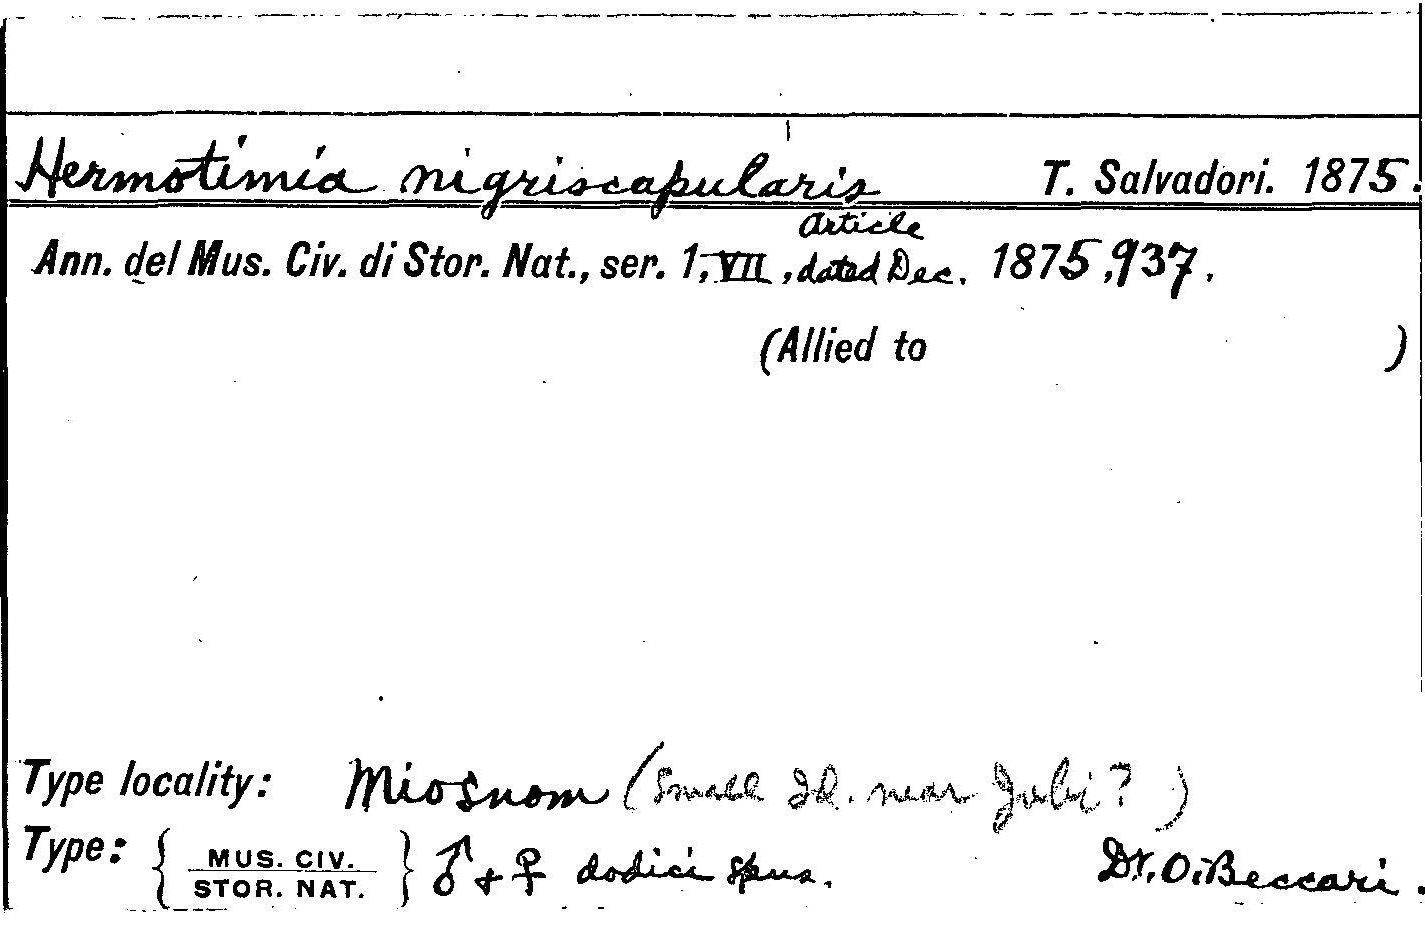 Hermotimia nigriscapularis T. Salvadori. 1875.
Article
Ann. del Mus. Civ. di Stor. Nat., ser. 1, VII, dated Dec. 1875, 937.
(Allied to )
Type locality: Miosnom (Small Id. near Jobi?)
Type: { MUS. CIV. STOR. NAT. } ♂ + ♀ dodici spms. Dr. O. Beccari.